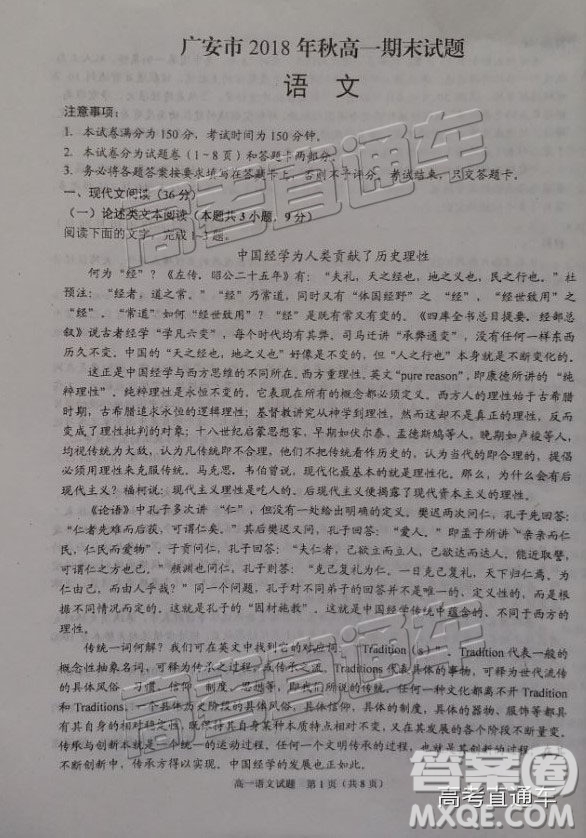 广安市 2018 年秋高一期末试题
语 文
注意事项：
1. 本试卷满分为 150 分，考试时间为 150 分钟。
2. 本试卷分为试题卷（1～8 页）和答题卡两部分。
3. 务必将各题答案按要求填写在答题卡上，否则不予评分。考试结束，只交答题卡。
一、现代文阅读（36 分）
（一）论述类文本阅读（本题共 3 小题，9 分）
阅读下面的文字，完成 1~3 题。
中国经学为人类贡献了历史理性
何为“经”？《左传，昭公二十五年》有：“夫礼，天之经也，地之义也，民之行也。”杜
预注：“经者，道之常。”“经”乃常道，同时又有“体国经野”之“经”，“经世致用”之
“经”。“常道”如何“经世致用”？“经”是既有常又有变的。《四库全书总目提要．经部总
叙》说古者经学“学凡六变”，每个时代均有其弊。司马迁讲“承弊通变”，没有任何一样东西
历久不变。中国的“天之经也，地之义也”好像是不变的，但“人之行也”本身就是不断变化的。
这正是中国经学与西方思维的不同所在。西方重理性。英文“pure reason”，即康德所讲的“纯
粹理性”。纯粹理性是永恒不变的，它表现在所有的概念都必须定义。西方人的理性始于古希腊
时期，古希腊追求永恒的逻辑理性；基督教讲究从神学到理性，然而这却不是真正的理性，反而
变成了理性批判的对象；十八世纪启蒙思想家，早期如伏尔泰、孟德斯鸠等人，晚期如卢梭等人，
均视传统为大敌，认为凡传统即不合理。他们不把传统看作历史的，认为当代的即合理的，提倡
必须用理性来克服传统。马克思．韦伯曾说，现代化最基本的就是理性化。那么，为什么会有后
现代主义？福柯说：现代主义理性是吃人的。后现代主义便揭露了现代资本主义的理性。
《论语》中孔子多次讲“仁”，但没有一处给出明确的定义。樊迟两次问仁，孔子先回答：
“仁者先难而后获，可谓仁矣。”其后樊迟又问，孔子回答：“爱人。”即孟子所讲“亲亲而仁
民，仁民而爱物”。子贡问仁，孔子回答：“夫仁者，己欲立而立人，己欲达而达人。能近取譬，
可谓仁之方也已。”颜渊也问仁，孔子则答：“克己复礼为仁。一日克己复礼，天下归仁焉。为
仁由己，而由人乎哉？”同一个问题，孔子对不同弟子的回答并不是唯一的、定义性的，而是具
体的和不断变化的。这就是孔子的“因材施教”。这就是中国经学传统中蕴含的、不同于西方的
理性。
传统一词何解？我们可在英文中找到它的对应词、“Tradition（s）”。Tradition 代表一般的
概念性抽象名词，可释为传承之过程，或传承之流。Traditions 代表具体的事物，可释为世代流传
的具体风俗、习惯、信仰、制度、思想等，即我们所说的传统。任何一种文化都离不开 Tradition
和 Traditions，一个具体历史阶段的具体风俗、信仰、制度，一个具体的器物、服饰等都具
有其自身的相对稳定性，既然持其自身本质特点相对不变，又在其发展的各个阶段不断有变化。
传承与创新本就是一体的、互动的，任何一个传承的过程中，也就是其创新的过程，
不断创新中，传承方得以实现。中国经学的发展也正如此。
高一语文试题 第 1 页（共 8 页）
高考直通车
答案圈
高考直通车
MXQE.COM